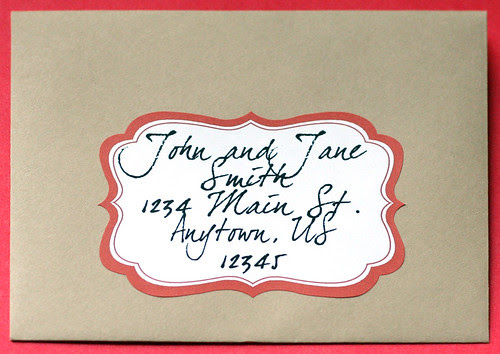 John and Jane
Smith
1234 Main St.
Anytown, US
12345